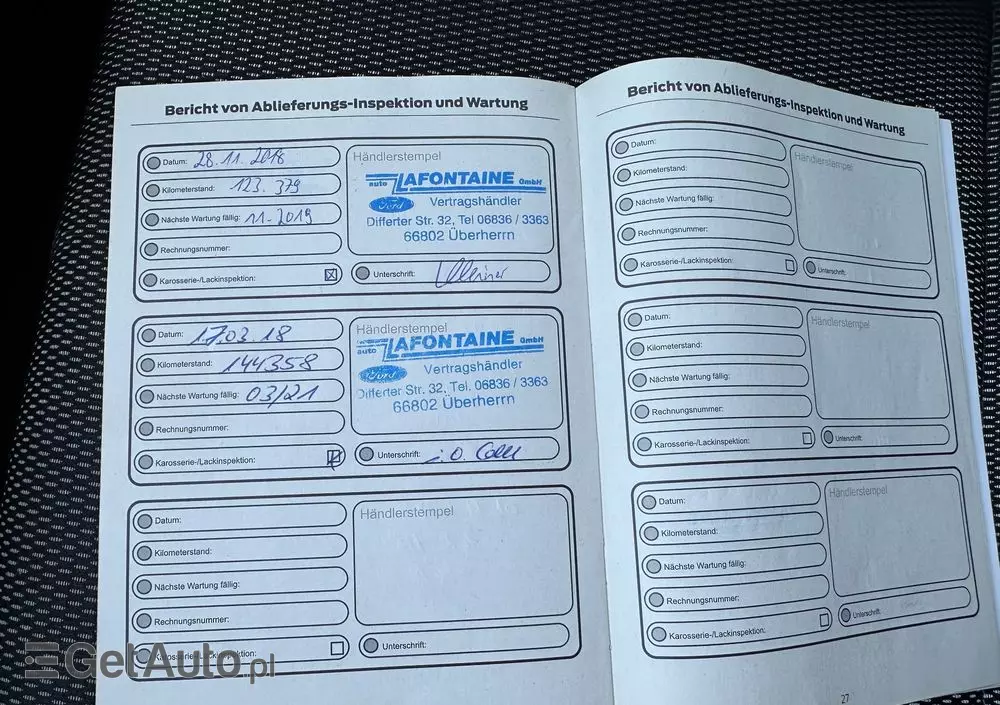 Bericht von Ablieferungs-Inspektion und Wartung
Datum: 28.11.2018
Kilometerstand: 123.379
Nächste Wartung fällig: 11-2019
Rechnungsnummer:
Karosserie-/Lackinspektion:
Händlerstempel
auto LAFONTAINE GmbH
Ford Vertragshändler
Differter Str. 32, Tel 06836 / 3363
66802 Überherrn
Unterschrift:
Datum: 17.03.18
Kilometerstand: 144358
Nächste Wartung fällig: 03/21
Rechnungsnummer:
Karosserie-/Lackinspektion:
Händlerstempel
auto LAFONTAINE GmbH
Ford Vertragshändler
Differter Str. 32, Tel. 06836 / 3363
66802 Überherrn
Unterschrift:
Datum:
Kilometerstand:
Nächste Wartung fällig:
Rechnungsnummer:
Karosserie-/Lackinspektion:
Händlerstempel
Unterschrift:
Bericht von Ablieferungs-Inspektion und Wartung
Datum:
Kilometerstand:
Nächste Wartung fällig:
Rechnungsnummer:
Karosserie-/Lackinspektion:
Händlerstempel
Unterschrift:
Datum:
Kilometerstand:
Nächste Wartung fällig:
Rechnungsnummer:
Karosserie-/Lackinspektion:
Händlerstempel
Unterschrift:
Datum:
Kilometerstand:
Nächste Wartung fällig:
Rechnungsnummer:
Karosserie-/Lackinspektion:
Händlerstempel
Unterschrift:
27
GetAuto.pl